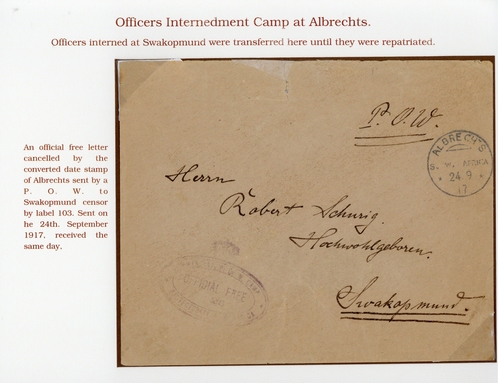 Officers Internedment Camp at Albrechts.
Officers interned at Swakopmund were transferred here until they were repatriated.
An official free letter
cancelled by the
converted date stamp
of Albrechts sent by a
P. O. W. to
Swakopmund censor
by label 103. Sent on
he 24th. September
1917, received the
same day.
P.O.W.
ALBRECHTS
S. W. AFRICA
24 9
17
Herrn
Robert Schurig.
Hochwohlgeboren.
OFFICIAL FREE
Swakopmund.